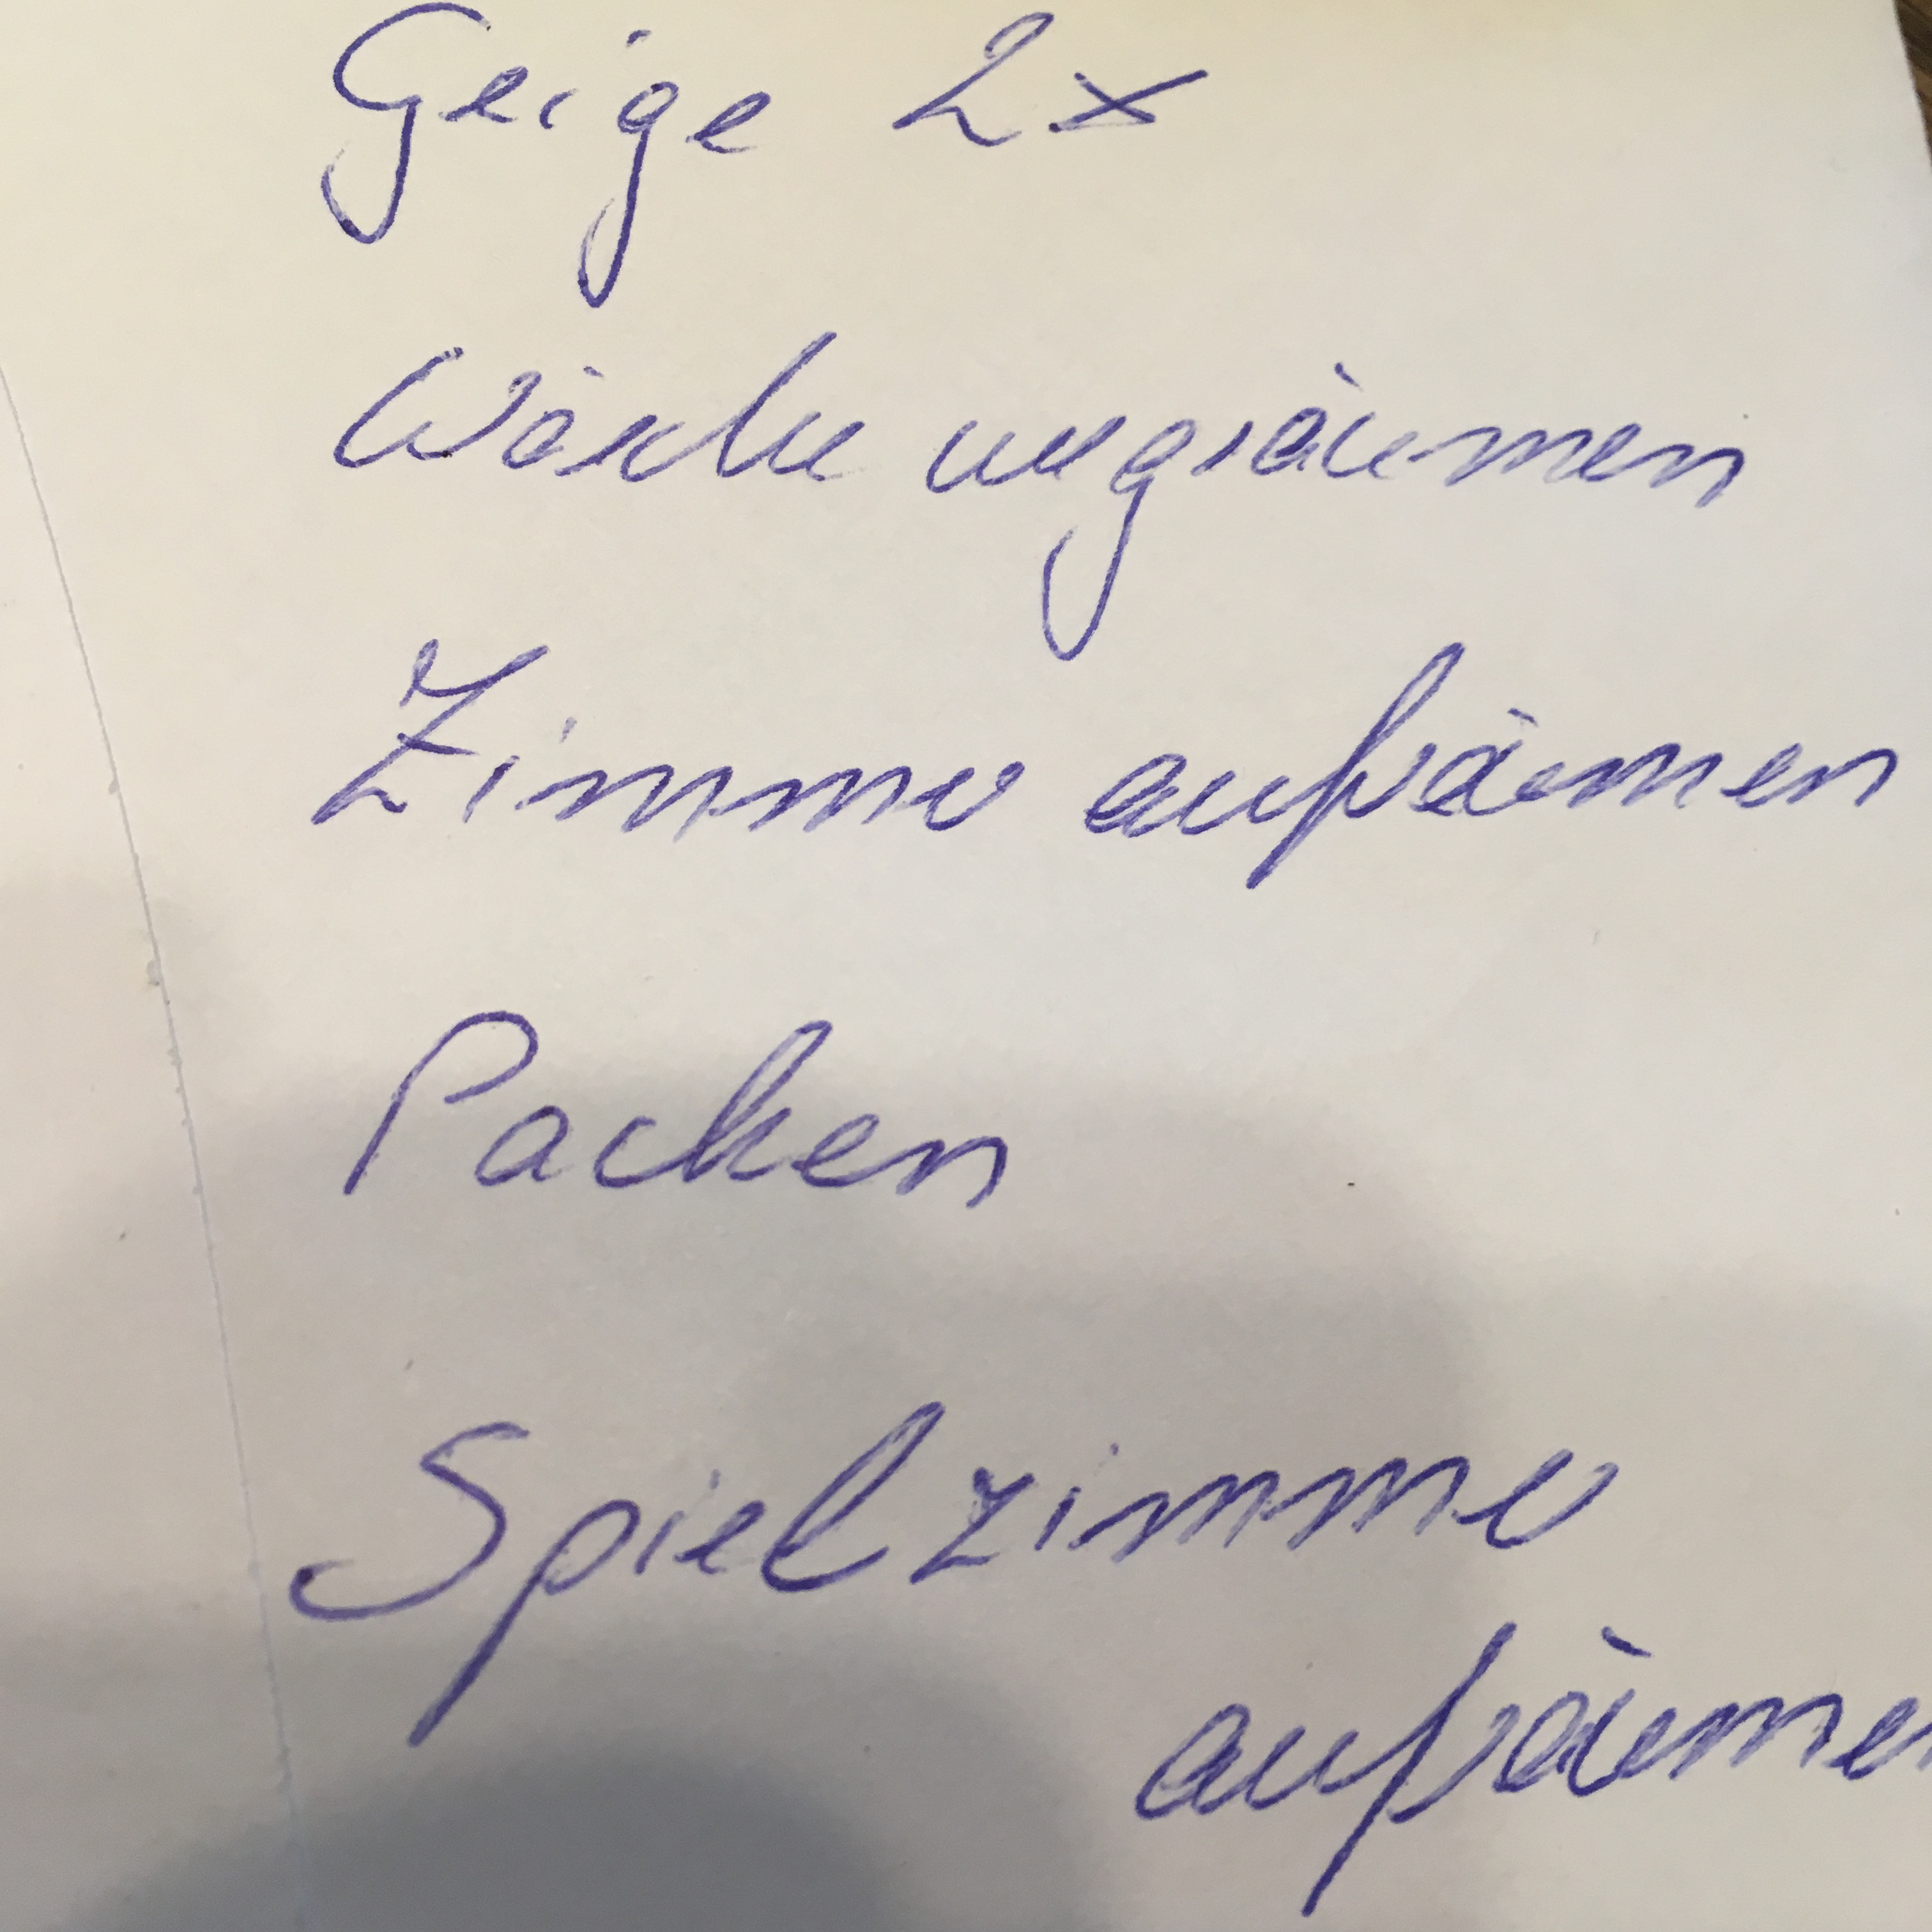 Geige 2x
Wäsche wegräumen
Zimmer aufräumen
Packen
Spielzimmer
aufräumen